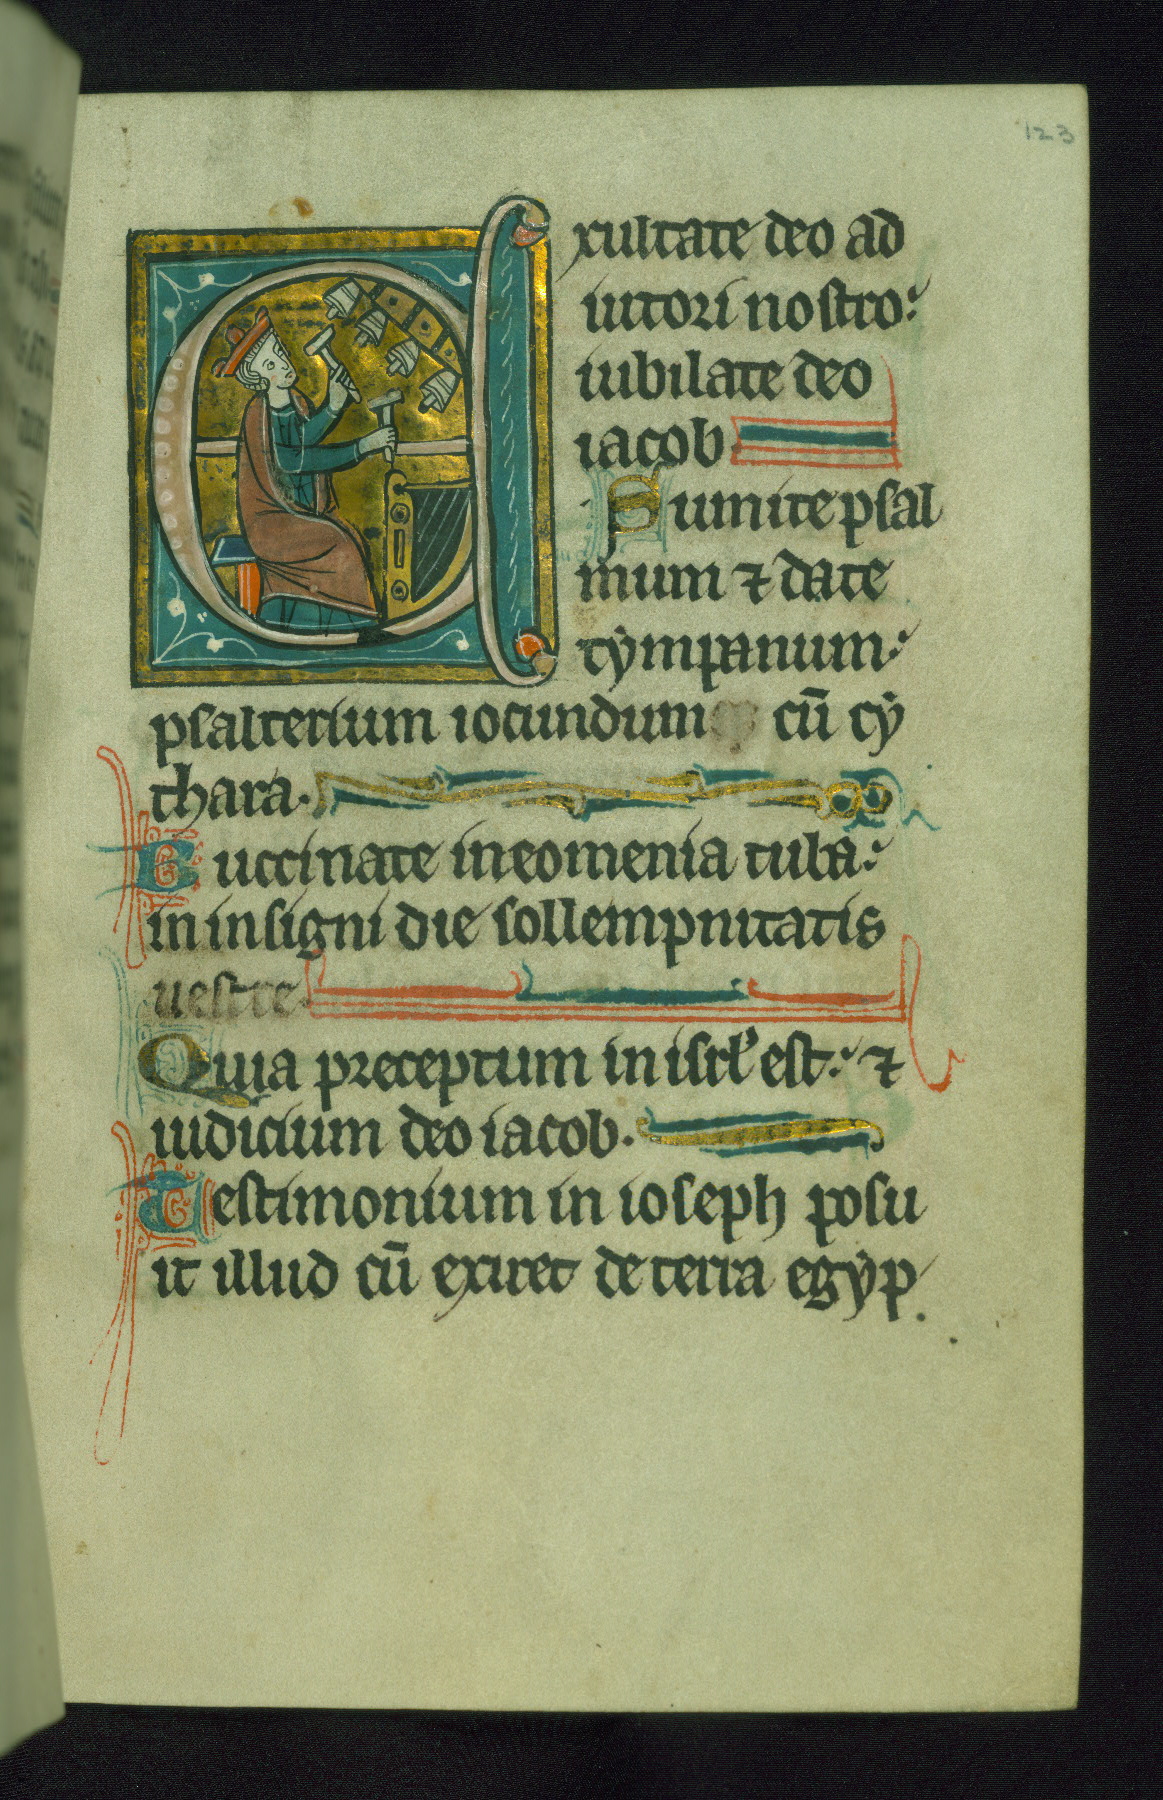 123
Exultate deo ad
iutori nostro:
iubilate deo
iacob
Sumite psal
mum ⁊ date
tẏmpanum:
psalterium iocundum cū cẏ
thara.
Buccinate in eomenia tuba:
in insigni die sollempnitatis
uestre
Quia preceptum in isrl̓ est: ⁊
iudicium deo iacob.
Testimonium in ioseph posu
it illud cū exiret de terra egẏp